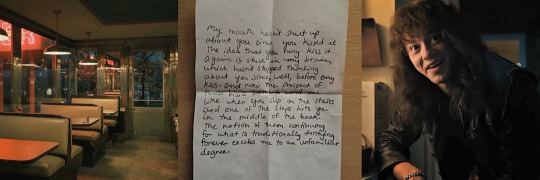 My mouth hasn't shut up
about you since you kissed it.
The idea that you may kiss it
again is stuck in my brain,
which hasn't stopped thinking
about you since, well, before any
kiss. And now the prospect of
like when you slip on the stairs
and one of the steps hits you
in the middle of the back.
The notion of them continuing
for what is traditionally terrifying
forever excites me to an unfamiliar
degree.